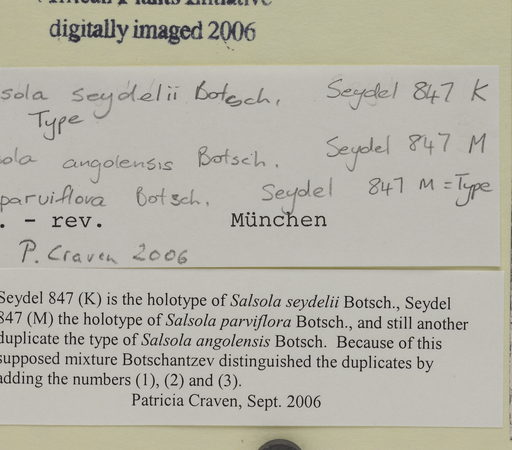 Plants Initiative
digitally imaged 2006
sola seydelii Botsch. Seydel 847 K
Type
ola angolensis Botsch. Seydel 847 M
parviflora Botsch. Seydel 847 M = Type
. - rev. München
P. Craven 2006
Seydel 847 (K) is the holotype of Salsola seydelii Botsch., Seydel
847 (M) the holotype of Salsola parviflora Botsch., and still another
duplicate the type of Salsola angolensis Botsch. Because of this
supposed mixture Botschantzev distinguished the duplicates by
adding the numbers (1), (2) and (3).
Patricia Craven, Sept. 2006